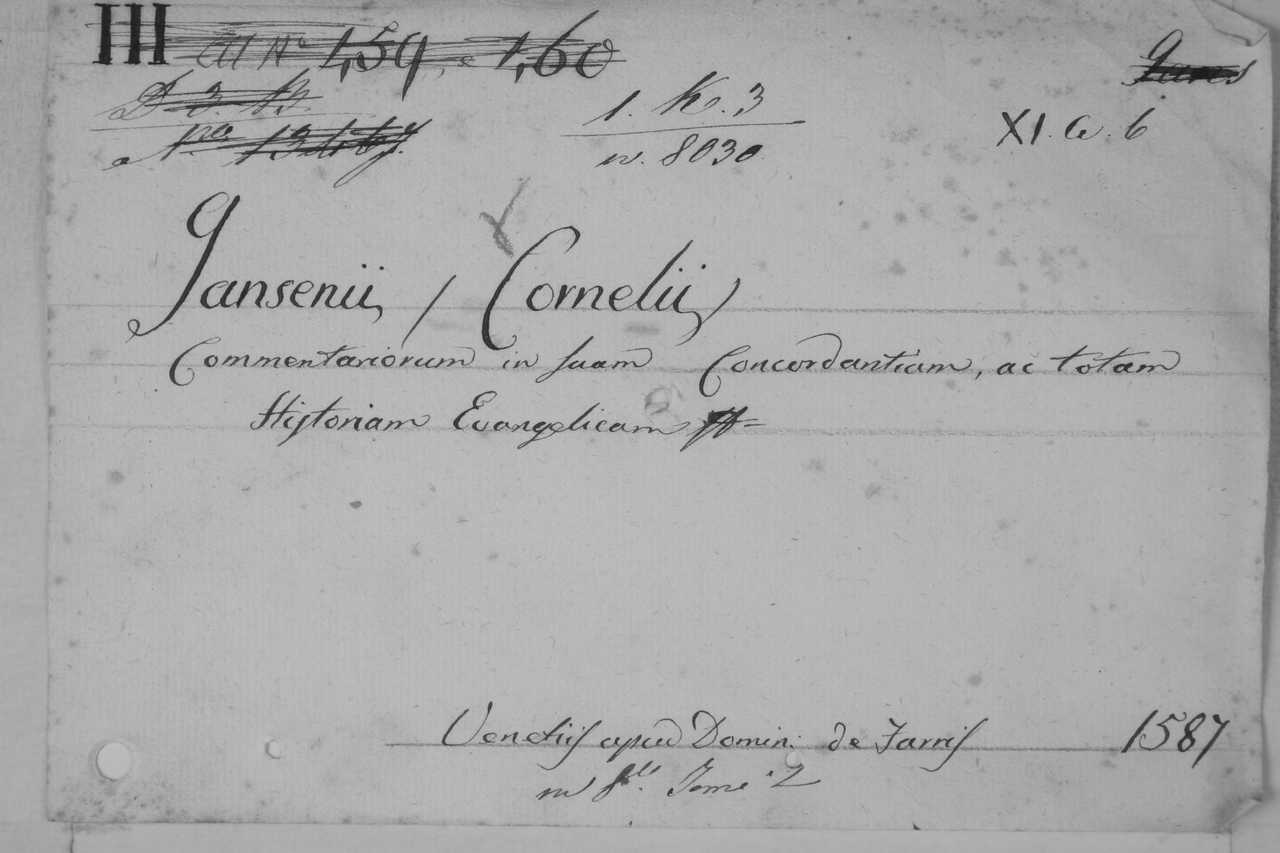 III 1,59, e 1,60
D. 3.
N.ro
1. K. 3
n. 8030
XI. G. 6
Jansenii, / Cornelii,
Commentariorum in suam Concordantiam, ac totam
Historiam Evangelicam
Venetiis apud Domin: de Farris 1587
in 8.to Tomi 2